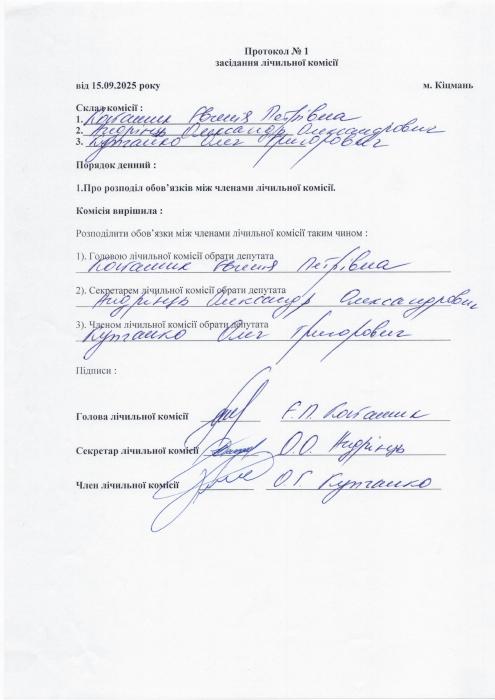 Протокол № 1
засідання лічильної комісії
від 15.09.2025 року м. Кіцмань
Склад комісії :
1. Євгенія Петрівна
2. Андрієць Олександр Олександрович
3. Олег Григорович
Порядок денний :
1.Про розподіл обов’язків між членами лічильної комісії.
Комісія вирішила :
Розподілити обов’язки між членами лічильної комісії таким чином :
1). Головою лічильної комісії обрати депутата
Євгенія Петрівна
2). Секретарем лічильної комісії обрати депутата
Андрієць Олександр Олександрович
3). Членом лічильної комісії обрати депутата
Олег Григорович
Підписи :
Голова лічильної комісії Є.П.
Секретар лічильної комісії О.О. Андрієць
Член лічильної комісії О.Г.